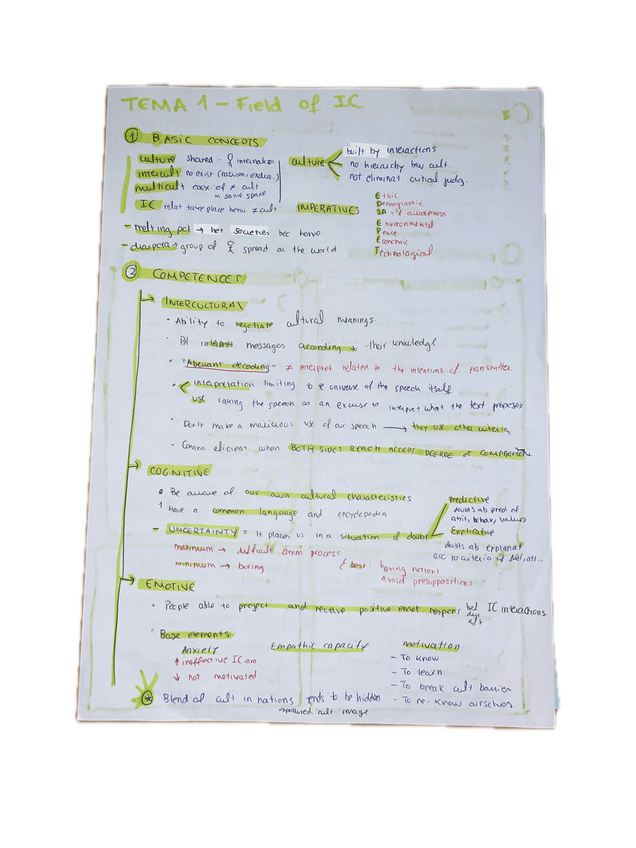 TEMA 1 - Field of IC
① BASIC CONCEPTS
culture shared -
intercult no exist (racism, exclus.)
multicult coex. of ≠ cult
in same space
IC relat take place betw ≠ cult
culture
built by interactions
no hierarchy btw cult.
not eliminat critical judg.
IMPERATIVES
Ethic
Demographic
awareness
Environmental
Peace
Economic
Technological
- melting pot → het societies bec homo
- diaspora → group of spread as the world
② COMPETENCES
INTERCULTURAL
• Ability to negotiate cultural meanings.
• interpret messages according to their knowledge
• "Aberrant decoding" ≠ interpret related to the intentions of transmitter.
• interpretation limiting to universe of the speech itself
use taking the speech as an excuse to interpret what the text proposes
• Don't make a malicious use of our speech → they use other criteria
• Comm eficient when BOTH SIDES REACH ACCEPT DEGREE OF COMPREHEN.
COGNITIVE
• Be aware of our own cultural characteristics
Have a common language and encyclopedia
- UNCERTAINTY = it places us in a situation of doubt
Predictive
doubts ab pred of
attit, behav, values
Explicative
doubts ab explanat
acc to criteria of
maximum → difficult comm process
minimum → boring
best: having notions
avoid presuppositions
EMOTIVE
• People able to project and receive positive emot respons bef
dur
aft
IC interactions.
• Base elements:
Anxiety
↑ ineffective IC
↓ not motivated
Empathic capacity
motivation
- To know
- To learn
- To break cult barries
- To re-know ourselves
Blend of cult in nations tends to be hidden
cult image